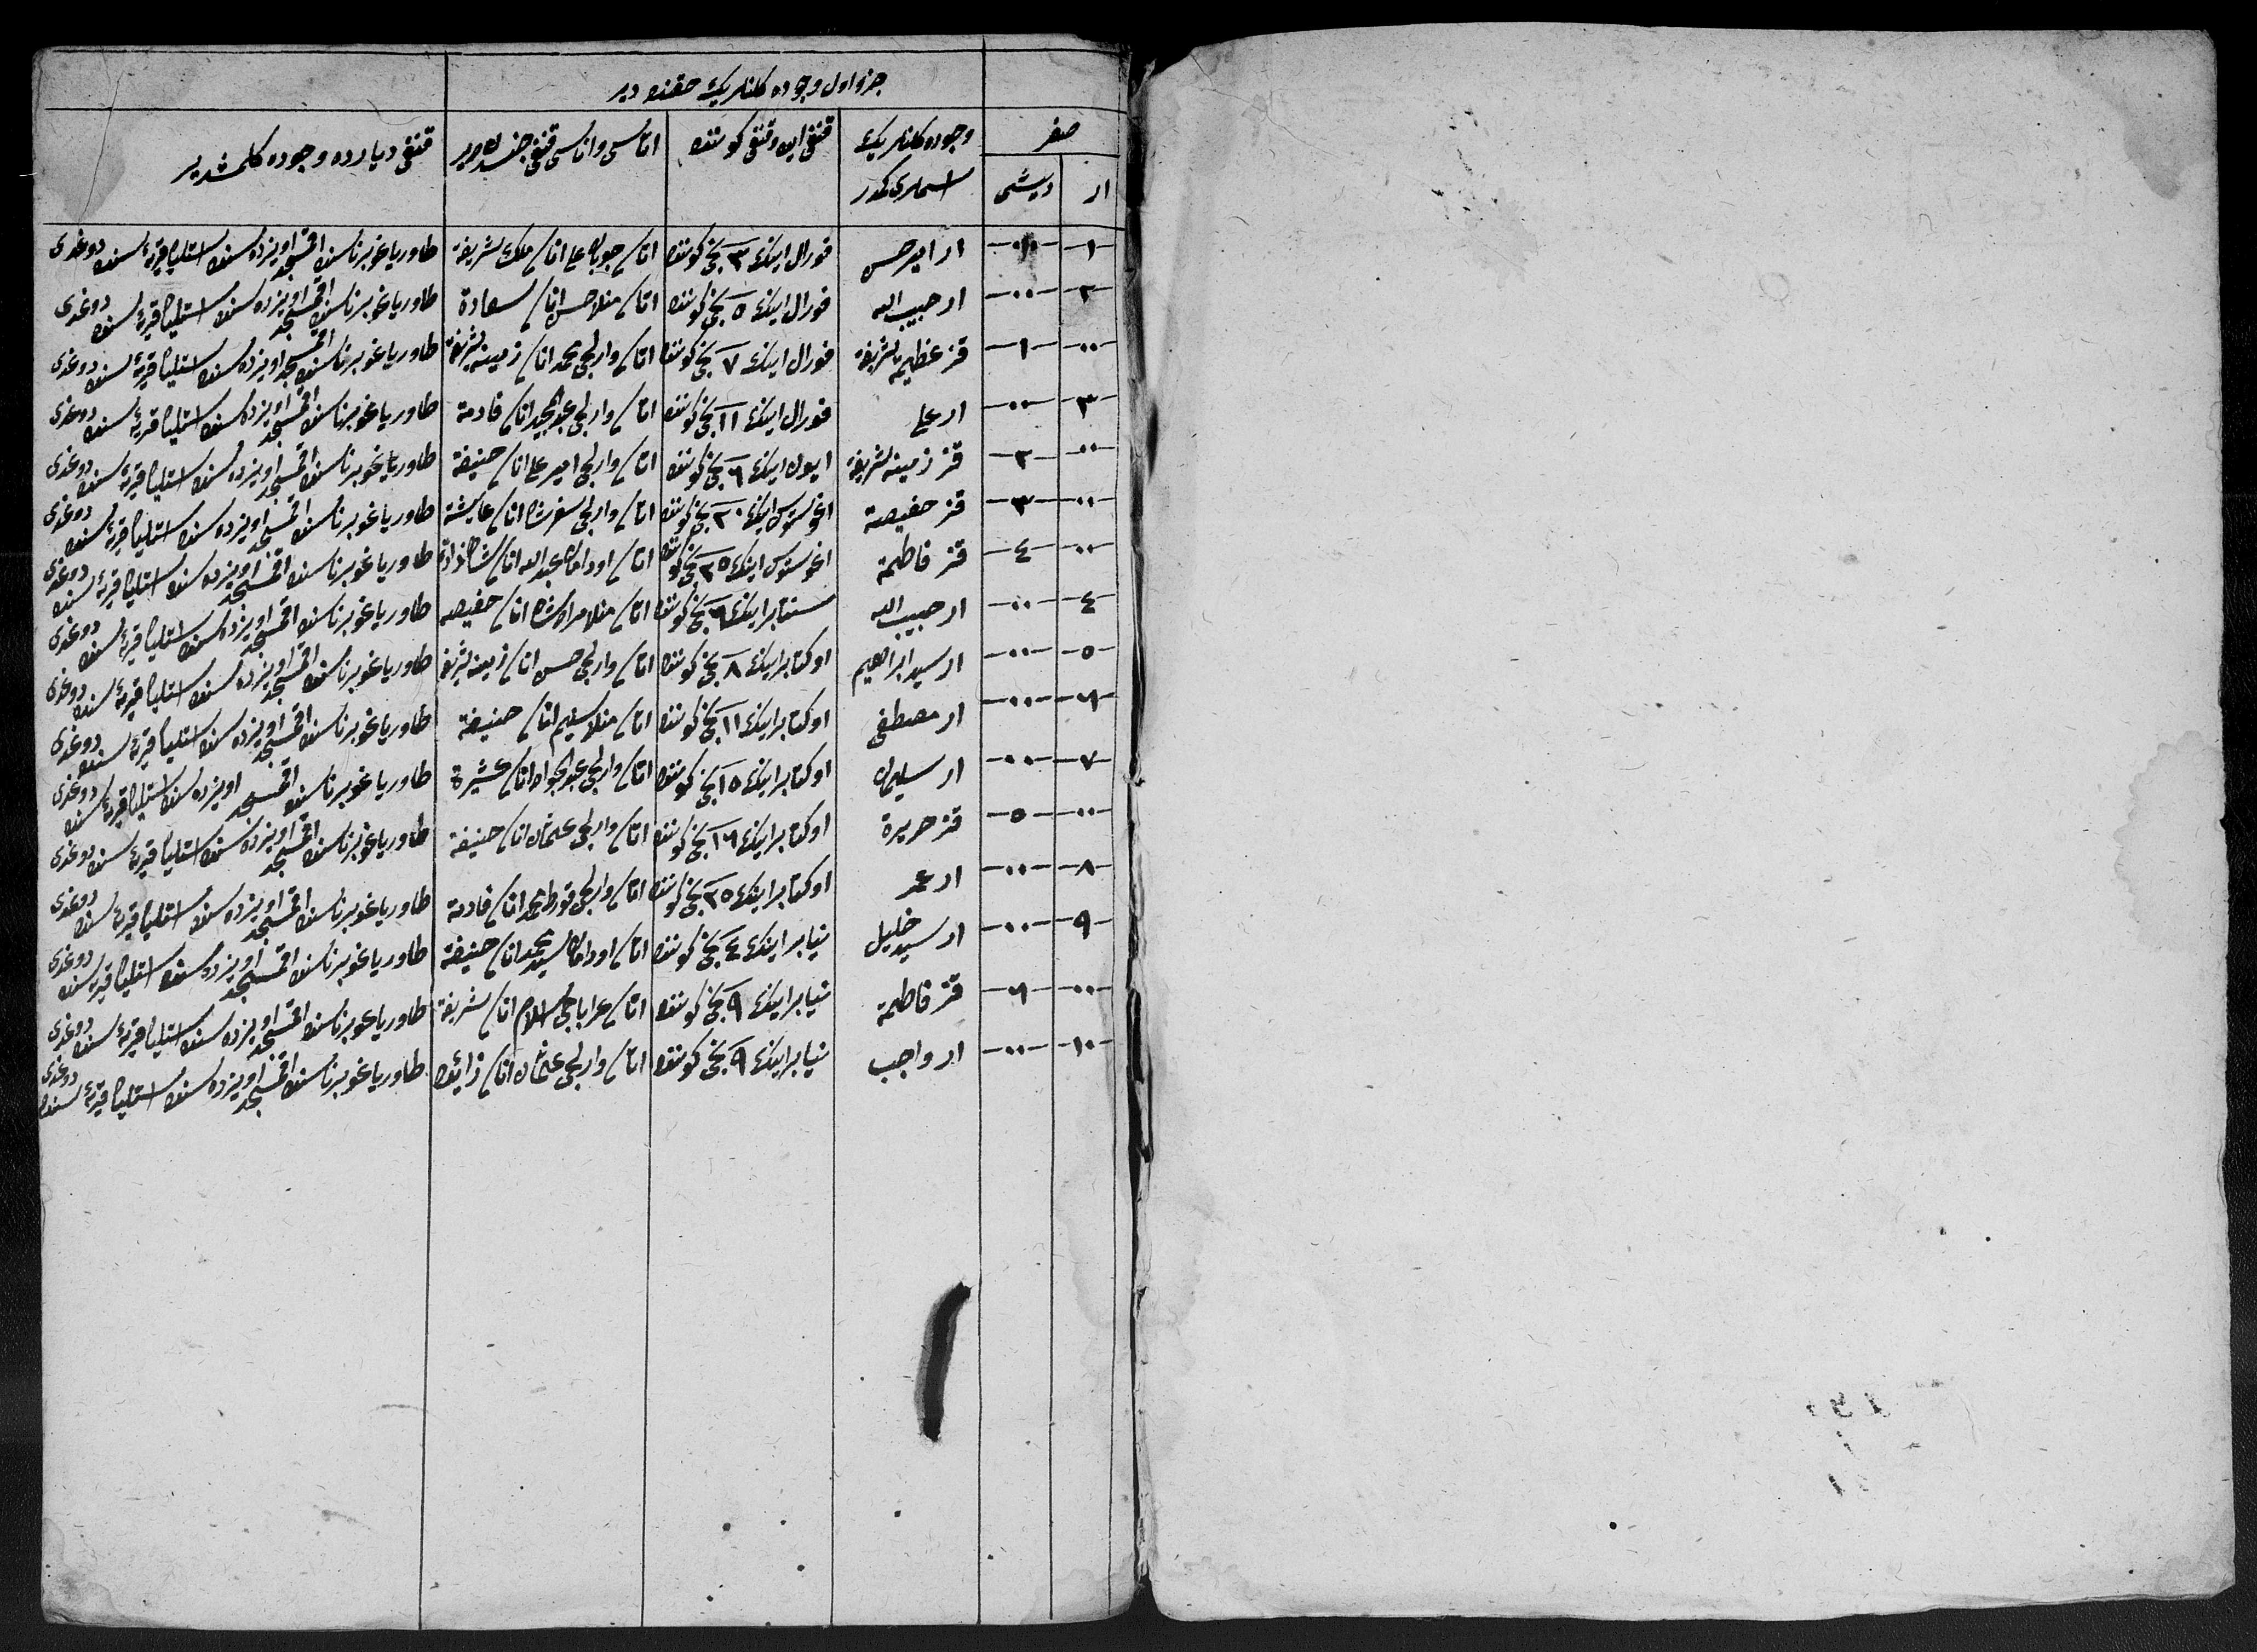 جزء اول وجوده كلنلرينك حقنده در
صفر
ار
ديشى
وجوده كلنلرينك اسملرى كمدر
قنغى اى و قنغى كوننده
اتاسى و اناسى قنغى جنسدندر
قنغى ديارده وجوده كلمشدير
١ ٠٠ ار امير حسن فورال اينك ٣ نجى كوننده اتاسى چوبان على اناسى ملك شريفه طاوريا غوبرناسنده اقمسجد اويزدهسنده استليا قريهٔ سنده دوغدى
٢ ٠٠ ار حبيب الله فورال اينك ٥ نجى كوننده اتاسى منلا حسن اناسى سعادة طاوريا غوبرناسنده اقمسجد اويزدهسنده استليا قريهٔ سنده دوغدى
٠٠ ١ قز عظيمه شريفه فورال اينك ٧ نجى كوننده اتاسى وارلجى محمد اناسى زمينه شريفه طاوريا غوبرناسنده اقمسجد اويزدهسنده استليا قريهٔ سنده دوغدى
٣ ٠٠ ار على فورال اينك ١١ نجى كوننده اتاسى وارلجى عبد المجيد اناسى فادمة طاوريا غوبرناسنده اقمسجد اويزدهسنده استليا قريهٔ سنده دوغدى
٠٠ ٢ قز زمينه شريفه ايون اينك ٦ نجى كوننده اتاسى وارلجى امير على اناسى حنيفة طاوريا غوبرناسنده اقمسجد اويزدهسنده استليا قريهٔ سنده دوغدى
٠٠ ٣ قز حفيصة اغوستوس اينك ٢٠ نجى كوننده اتاسى وارلجى سفرشاه اناسى عايشة طاوريا غوبرناسنده اقمسجد اويزدهسنده استليا قريهٔ سنده دوغدى
٠٠ ٤ قز فاطمة اغوستوس اينك ٢٥ نجى كوننده اتاسى اودامان عبد الله اناسى شاهزادة طاوريا غوبرناسنده اقمسجد اويزدهسنده استليا قريهٔ سنده دوغدى
٤ ٠٠ ار حبيب الله سنتابر اينك ٦ نجى كوننده اتاسى منلا مرادشاه اناسى حفيصه طاوريا غوبرناسنده اقمسجد اويزدهسنده استليا قريهٔ سنده دوغدى
٥ ٠٠ ار سيد ابراهيم اوكتابر اينك ٨ نجى كوننده اتاسى وارلجى حسن اناسى زمينه شريفه طاوريا غوبرناسنده اقمسجد اويزدهسنده استليا قريهٔ سنده دوغدى
٦ ٠٠ ار مصطفى اوكتابر اينك ١١ نجى كوننده اتاسى منلا سليم اناسى حنيفة طاوريا غوبرناسنده اقمسجد اويزدهسنده استليا قريهٔ سنده دوغدى
٧ ٠٠ ار سليمان اوكتابر اينك ١٥ نجى كوننده اتاسى وارلجى عبد الجواد اناسى عشيرة طاوريا غوبرناسنده اقمسجد اويزدهسنده استليا قريهٔ سنده دوغدى
٠٠ ٥ قز حريرة اوكتابر اينك ١٦ نجى كوننده اتاسى وارلجى عثمان اناسى حنيفة طاوريا غوبرناسنده اقمسجد اويزدهسنده استليا قريهٔ سنده دوغدى
٨ ٠٠ ار عمر اوكتابر اينك ٢٥ نجى كوننده اتاسى وارلجى قورط محمد اناسى فادمة طاوريا غوبرناسنده اقمسجد اويزدهسنده استليا قريهٔ سنده دوغدى
٩ ٠٠ ار سيد خليل نيابر اينك ٤ نجى كوننده اتاسى اودامان سيد محمد اناسى حنيفة طاوريا غوبرناسنده اقمسجد اويزدهسنده استليا قريهٔ سنده دوغدى
٠٠ ٦ قز فاطمة نيابر اينك ٩ نجى كوننده اتاسى عراباجى اسلام اناسى شريفة طاوريا غوبرناسنده اقمسجد اويزدهسنده استليا قريهٔ سنده دوغدى
١٠ ٠٠ ار واجب نيابر اينك ٩ نجى كوننده اتاسى وارلجى عثمان اناسى زائده طاوريا غوبرناسنده اقمسجد اويزدهسنده استليا قريهٔ سنده دوغدى